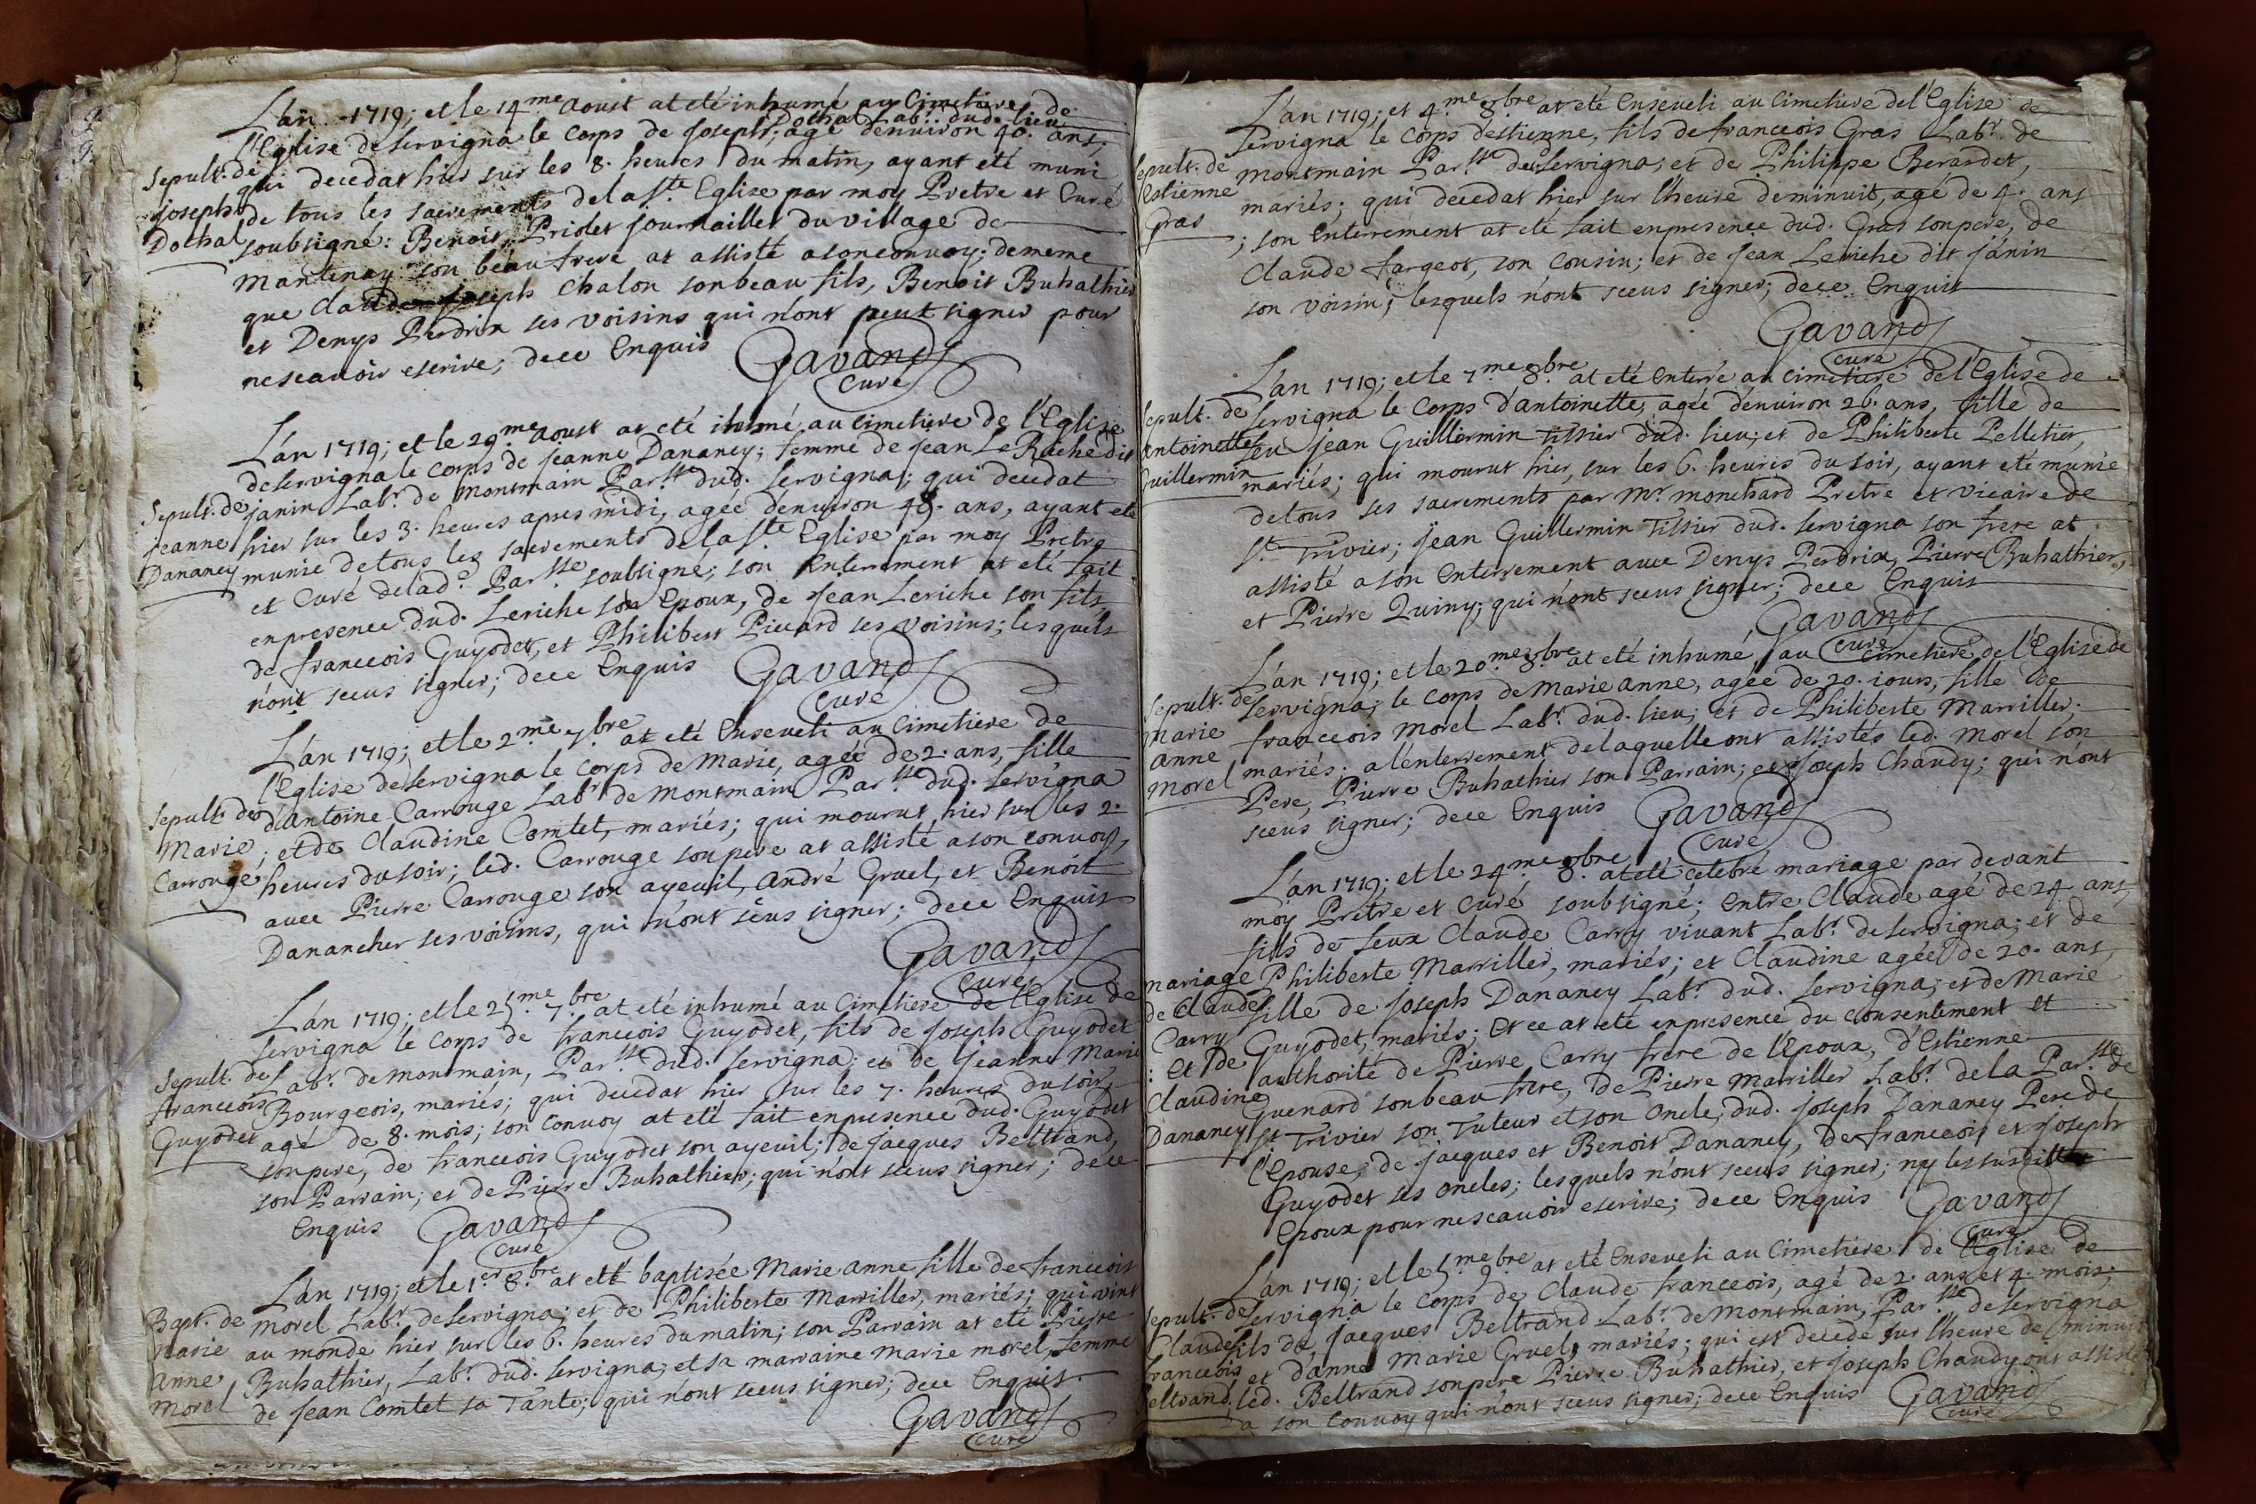 L'an 1719; et le 14.me Aoust at eté inhumé au Cimetiere de
l'Eglise de Servigna le Corps de Joseph Dothal Labr. dud. lieu, agé d'environ 40. ans,
qui decedat hier sur les 8. heures du matin, ayant eté muni
de tous les sacrements de la Ste. Eglise par moy Pretre et Curé
soubsigné: Benoit Priolet journaillier du village de
Mantenay son beau frere at assisté a son convoy; de meme
que Claude Joseph Chalon son beau fils, Benoit Buhathier
et Denys Perdrix ses voisins qui n'ont peut signer pour
ne scavoir escrire; de ce Enquis
Gavand
Curé
Sepult. de
Joseph
Dothal
L'an 1719; et le 29.me Aoust at eté ihumé au Cimetiere de l'Eglise
de Servigna le Corps de Jeanne Dananey; femme de Jean Le Riche dit
Janin Labr. de Montmain Par.sse dud. Servigna; qui decedat
hier sur les 3. heures apres midi, agée d'environ 48. ans, ayant eté
munie de tous les sacrements de la Ste. Eglise par moy Pretre
et Curé de lad.e Par.sse soubsigné; son Enterrement at eté fait
en presence dud. Leriche son Epoux, de Jean Leriche son fils,
de franceois Guyodet, et Philibert Picard ses voisins; lesquels
n'ont sceus signer; de ce Enquis
Gavand
Curé
Sepult. de
Jeanne
Dananey
L'an 1719; et le 2.me 7.bre at eté Enseveli au Cimetiere de
l'Eglise de Servigna le Corps de Marie, agée de 2. ans, fille
d'antoine Carrouge Labr. de Montmain Par.sse dud. Servigna
; et de Claudine Comtet, mariés; qui mourut hier sur les 2.
heures du soir; led. Carrouge son pere at assisté a son convoy,
avec Pierre Carrouge son ayeuil, André Gruel, et Benoit
Danancher ses voisins, qui n'ont sceus signer; de ce Enquis
Gavand
Curé
Sepult. de
Marie
Carrouge
L'an 1719; et le 25.me 7.bre at eté inhumé au Cimetiere de l'Eglise de
Servigna le Corps de franceois Guyodet, fils de Joseph Guyodet
Labr. de Montmain, Par.sse dud. Servigna; et de Jeanne Marie
Bourgeois, mariés; qui decedat hier sur les 7. heures du soir,
agé de 8. mois; son Convoy at eté fait en presence dud. Guyodet
son pere, de franceois Guyodet son ayeuil; de Jacques Beltrand,
son Parrain; et de Pierre Buhathier; qui n'ont sceus signer; de ce
Enquis
Gavand
Curé
Sepult. de
franceois
Guyodet
L'an 1719; et le 1.er 8.bre at eté baptisée Marie anne fille de franceois
Morel Labr. de Servigna; et de Philiberte Marriller, mariés; qui vint
au monde hier sur les 6. heures du matin; son Parrain at eté Pierre
Buhathier, Labr. dud. Servigna; et sa marraine Marie Morel, femme
de Jean Comtet sa Tante; qui n'ont sceus signer; de ce Enquis.
Gavand
Curé
Bapt. de
Marie
Anne
Morel
L'an 1719; et 4.me 8.bre at eté Enseveli au Cimetiere de l'Eglise de
Servigna le Corps d'Estienne, fils de franceois Gras Labr. de
Montmain Par.sse dud. Servigna; et de Philippe Berardet,
mariés; qui decedat hier sur l'heure de minuit, agé de 4. ans
; son Enterrement at eté fait en presence dud. Gras son pere, de
Claude fargeot, son Cousin; et de Jean Leriche dit Janin
son voisin; lesquels n'ont sceus signer; de ce Enquis
Gavand
Curé
Sepult. de
Estienne
Gras
L'an 1719; et le 7.me 8.bre at eté Enterré au Cimetiere de l'Eglise de
Servigna le Corps d'antoinette, agée d'environ 26. ans, fille de
feu Jean Guillermin Tissier dud. lieu; et de Philiberte Pelletier,
mariés; qui mourut hier, sur les 6. heures du soir, ayant eté munie
de tous ses sacrements par Mr. Monchard Pretre et Vicaire de
St. Trivier; Jean Guillermin Tissier dud. Servigna son frere at
assisté a son Enterrement avec Denys Perdrix, Pierre Buhathier,
et Pierre Quiny; qui n'ont sceus signer; de ce Enquis
Gavand
Curé
Sepult. de
Antoinette
Guillermin
L'an 1719; et le 20.me 8.bre at eté inhumé au Cimetiere de l'Eglise de
Servigna; le Corps de Marie anne, agée de 20. jours, fille de
franceois Morel Labr. dud. lieu; et de Philiberte Marriller.
mariés; a l'enterrement de laquelle ont assistés led. Morel son
Pere, Pierre Buhathier son Parrain; et Joseph Chaudy; qui n'ont
sceus signer; de ce Enquis
Gavand
Curé
Sepult. de
Marie
anne
Morel
L'an 1719; et le 24.me 8.bre at eté celebré mariage par devant
moy Pretre et Curé soubsigné; Entre Claude agé de 24. ans,
fils de feux Claude Carry vivant Labr. de Servigna; et de
Philiberte Marriller, mariés; et Claudine agée de 20. ans,
fille de Joseph Dananey Labr. dud. Servigna; et de Marie
Guyodet, mariés; Et ce at eté en presence du Consentement et
authorité de Pierre Carry frere de l'Epoux, d'Estienne
Guenard son beau frere, de Pierre Marriller Labr. de la Par.sse de
St Trivier son Tuteur et son Oncle, dud. Joseph Dananey Pere de
l'Epouse, de Jacques et Benoit Dananey, de franceois et Joseph
Guyodet ses oncles; lesquels n'ont sceus signer; ny les susdits
Epoux pour ne scavoir escrire; de ce Enquis
Gavand
Curé
Mariage
de Claude
Carry
: Et de
Claudine
Dananey
L'an 1719; et le 5.me 9.bre at eté Enseveli au Cimetiere de l'Eglise de
Servigna le Corps de Claude franceois, agé de 2. ans et 4. mois,
fils de Jacques Beltrand Labr. de Montmain, Par.sse de Servigna
et d'anne Marie Gruel, mariés; qui est decedé sur l'heure de minuit
led. Beltrand son pere Pierre Buhathier, et Joseph Chaudy ont assisté
a son Convoy qui n'ont sceus signer; de ce Enquis
Gavand
Curé
Sepult. de
Claude
franceois
Beltrand